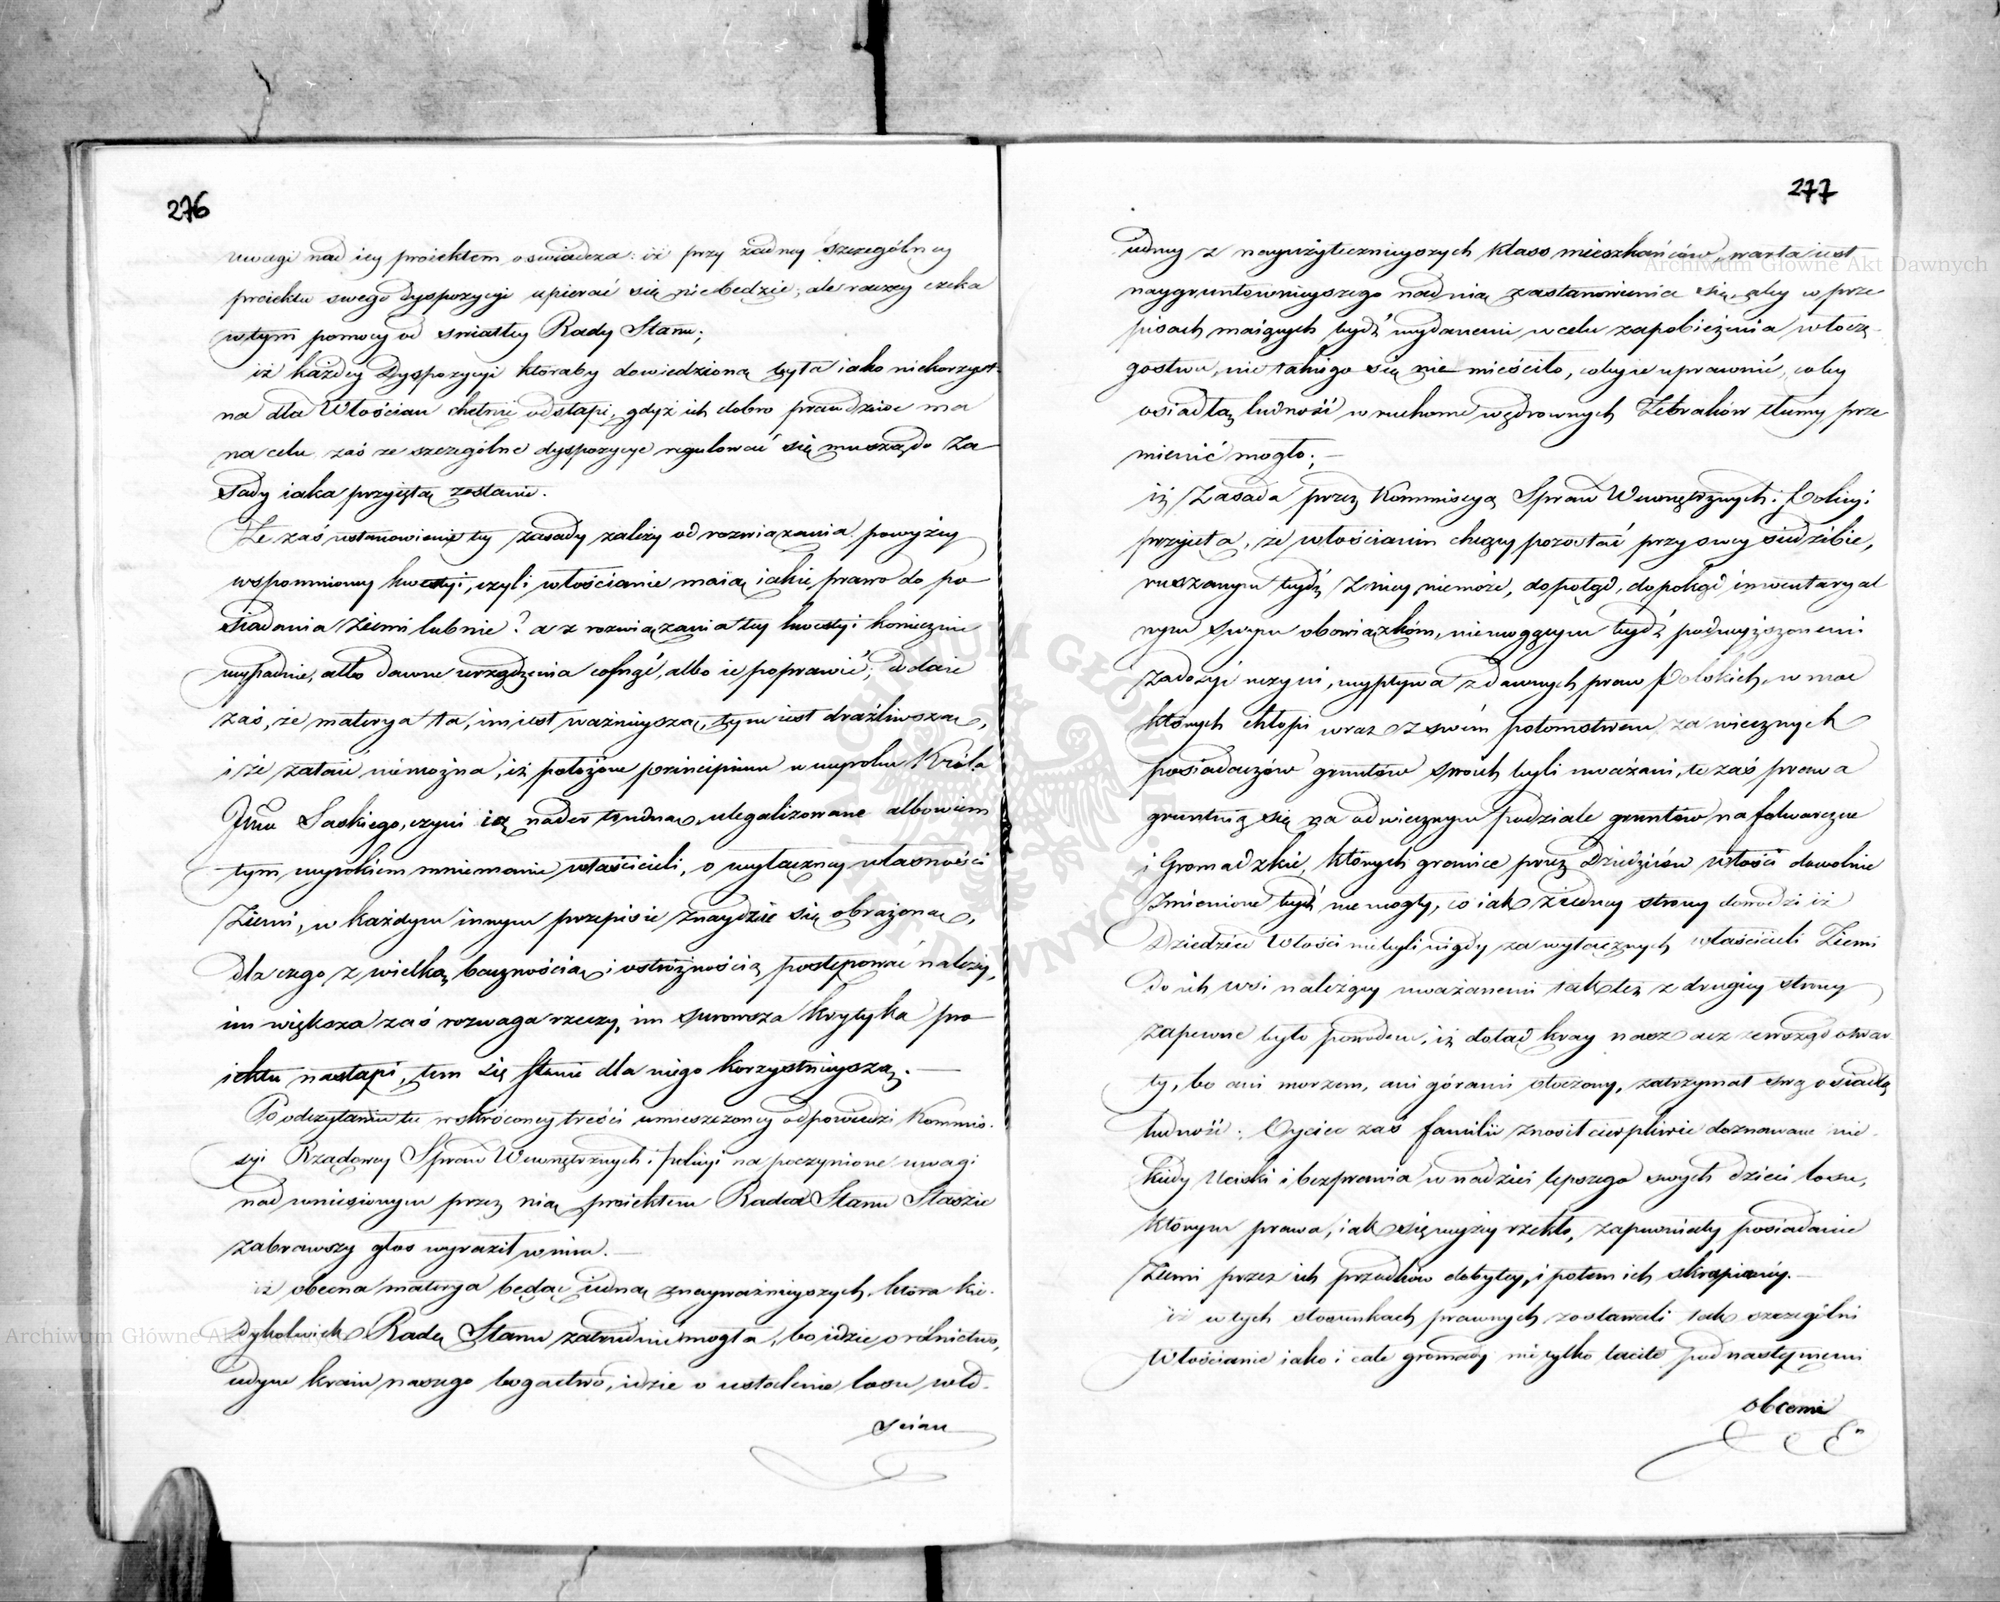 276
uwagi nad iey proiektem oswiadcza: iż przy żadney szczególney
proiektu swego dyspozycyi upierać się niebędzie, ale raczey czeka
w tym pomocy od swiatłey Rady Stanu;
iż każdey Dyspozycyi któraby dowiedzioną była iako niekorzyst-
na dla Włościan chętnie odstąpi, gdyż ich dobro prawdziwe ma
na celu zaś ze szczególne dyspozycye regulować się muszą do Za
sady iaka przyiętą zostanie.
Że zaś ustanowienie tey zasady zależy od rozwiązania powyżey
wspomnioney kwestyi, czyli włościanie maią iakie prawo do po
siadania Ziemi lub nie? a z rozwiązania tey kwestyi koniecznie
wypadnie, albo dawne urządzenia cofnąć, albo ie poprawić; dodaie
zaś, że materya ta, im iest ważnieyszą, tym iest drażliwszą,
i że zataić niemożna, iż położone principium w wyroku Króla
Jmci Saskiego, czyni ią nader trudną, ulegalizowane albowiem
tym wyrokiem mniemanie właścicieli, o wyłączney własności
Ziemi, w każdym innym przepisie znaydzie się obrażone,
dla czego z wielką bacznością i ostróżnością postępować należy,
im większa zaś rozwaga rzeczy, im surowsza krytyka pro
iektu nastąpi, tem się stanie dla niego korzystnieyszą.
Po odczytaniu tu w skróconey treści umieszczoney odpowiedzi Kommis-
syi Rządowey Spraw Wewnętrznych i policyi na poczynione uwagi
nad wniesionym przez nią proiektem Radca Stanu Staszic
zabrawszy głos wyraził w nim.
iż obecna materya będąc iedną z nayważnieyszych, która kie-
dykolwiek Radę Stanu zatrudnić mogła, bo idzie o rólnictwo,
iedyne kraiu naszego bogactwo, idzie o ustalenie losu wło-
ścian
277
iedney z nayużytecznieyszych klass mieszkańców, warta iest
naygruntownieyszego nad nią zastanowienia się, aby w prze
pisach maiących bydź wydanemi w celu zapobieżenia włóczę-
gostwu, nic takiego się nie mieściło, coby ie uprawnić, coby
osiadłą ludność w ruchome wędrownych Żebraków tłumy prze
mienić mogło;
iż Zasada przez Kommissyą Spraw Wewnętrznych i Policyi
przyięta, że włościanin chcący pozostać przy swey siedzibie,
ruszonym bydź z niey niemoże, dopotąd, dopokąd inwentaryal
nym swym obowiązkóm, niemogącym bydź podwyższonemi
zadosyć uczyni, wypływa z dawnych praw Polskich, w moc
których chłopi wraz z swoim potomstwem za wiecznych
posiadaczów gruntów swoich byli uważani, te zaś prawa
gruntuią się na odwiecznym podziale gruntów na folwarczne
i Gromadzkie, których granice przez Dziedziców włości dowolnie
zmienione bydź nie mogły, co iak z iedney strony dowodzi iż
Dziedzice Włości niebyli nigdy za wyłącznych właścicieli Ziemi
do ich wsi należącey uważanemi tak też z drugiey strony
zapewne było powodem, iż dotąd kray nasz acz zewsząd otwar-
ty, bo ani morzem, ani górami otoczony, zatrzymał swą osiadłą
ludność; Oyciec zaś familii znosił cierpliwie doznawane nie-
kiedy uciski i bezprawia w nadziei lepszego swych dzieci losu,
którym prawa, iak się wyżey rzekło, zapewniały posiadanie
Ziemi przez ich przodków dobytey, i potem ich skropioney.
iż w tych stosunkach prawnych zostawali tak szczególni
Włościanie iako i całe gromady nie tylko lecz pod następnemi
obcemi